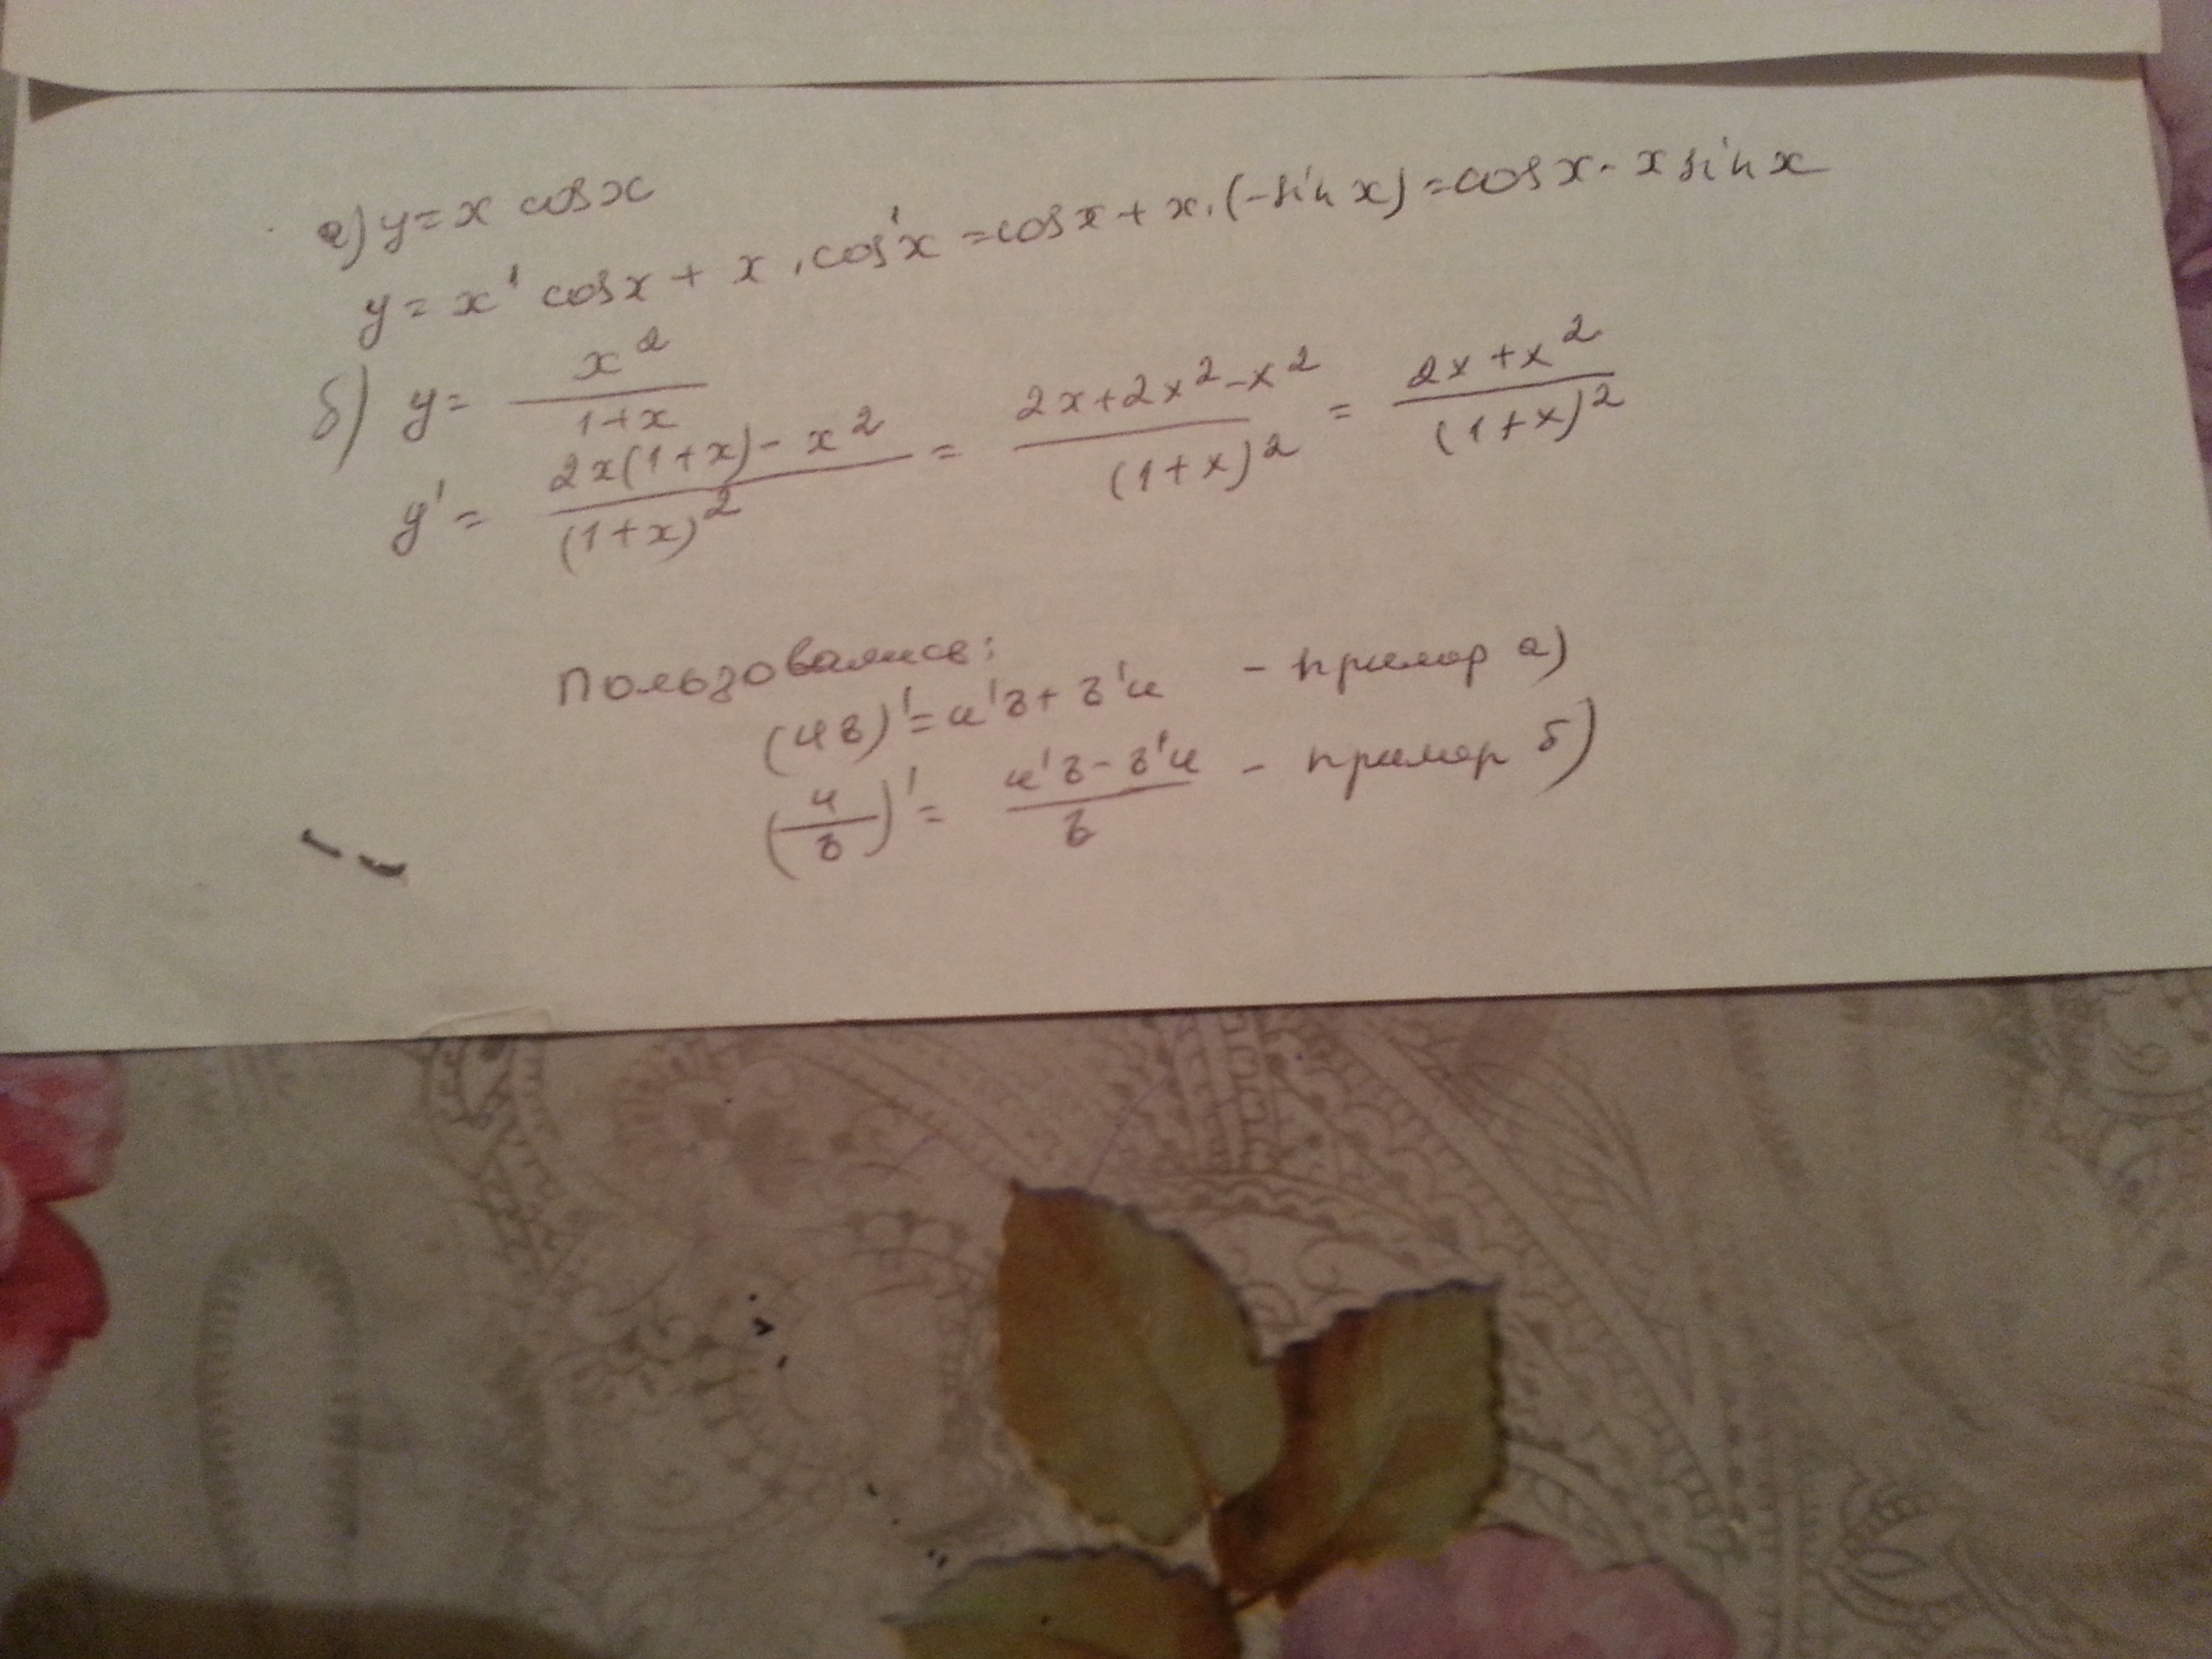 а) y = x cosx
y = x' cosx + x . cos'x = cosx + x . (-sin x) = cosx - x sinx
б) y = x²/(1+x)
y' = (2x(1+x) - x²)/(1+x)² = (2x+2x²-x²)/(1+x)² = (2x+x²)/(1+x)²
Пользовались:
(uв)' = u'в + в'u - пример а)
(u/в)' = (u'в - в'u)/в - пример б)